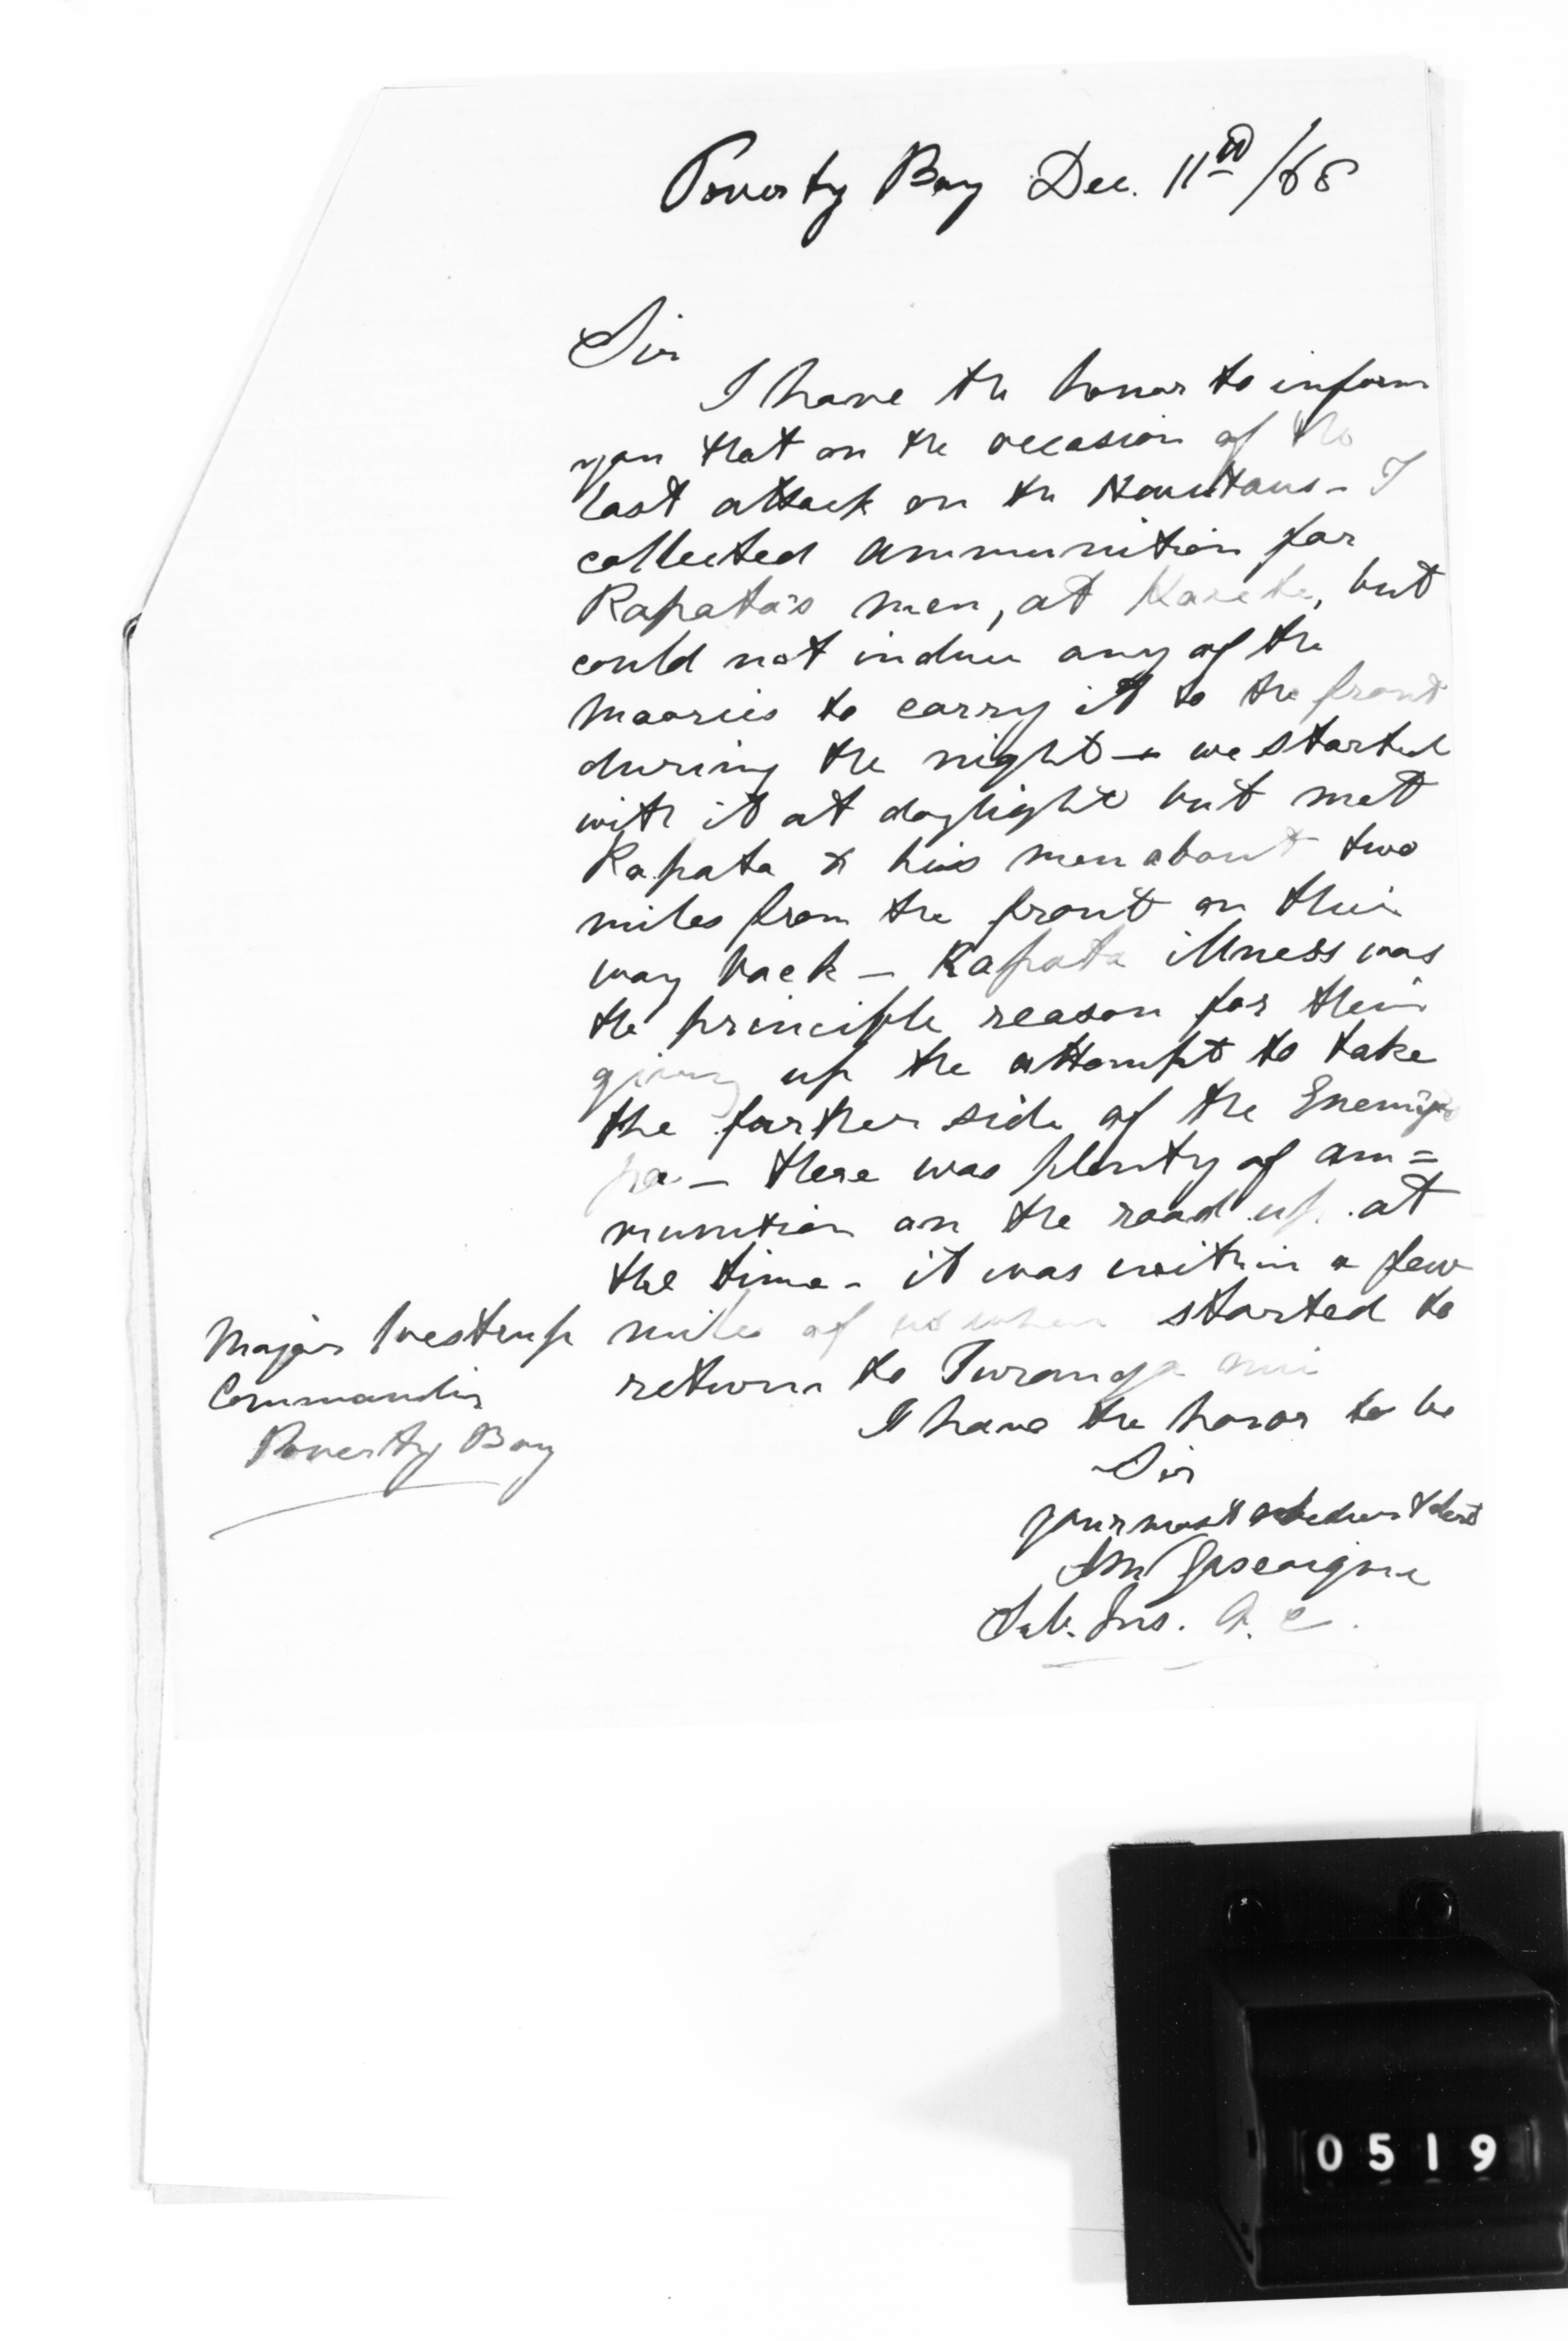 Poverty Bay Dec. 11th /68
Sir
I have the honor to inform
you that on the occasion of the
last attack on the Hauhaus - I
collected ammunition for
Rapata's men, at, but
could not induce any of the
Maories to carry it to the front
during the night — we started
with it at daylight but met
Rapata & his men about two
miles from the front on their
way back — Rapata illness was
the principle reason for their
giving up the attempt to take
the further side of the Enemy's
pa — there was plenty of am=
munition on the road up at
the time - it was within a few
miles of us when started to
return to Turanga nui
I have the honor to be
Sir
your most obedient Servt
JM Gascoigne
Sub. Ins. A. C.
Major Westrup
Commanding
Poverty Bay
0519